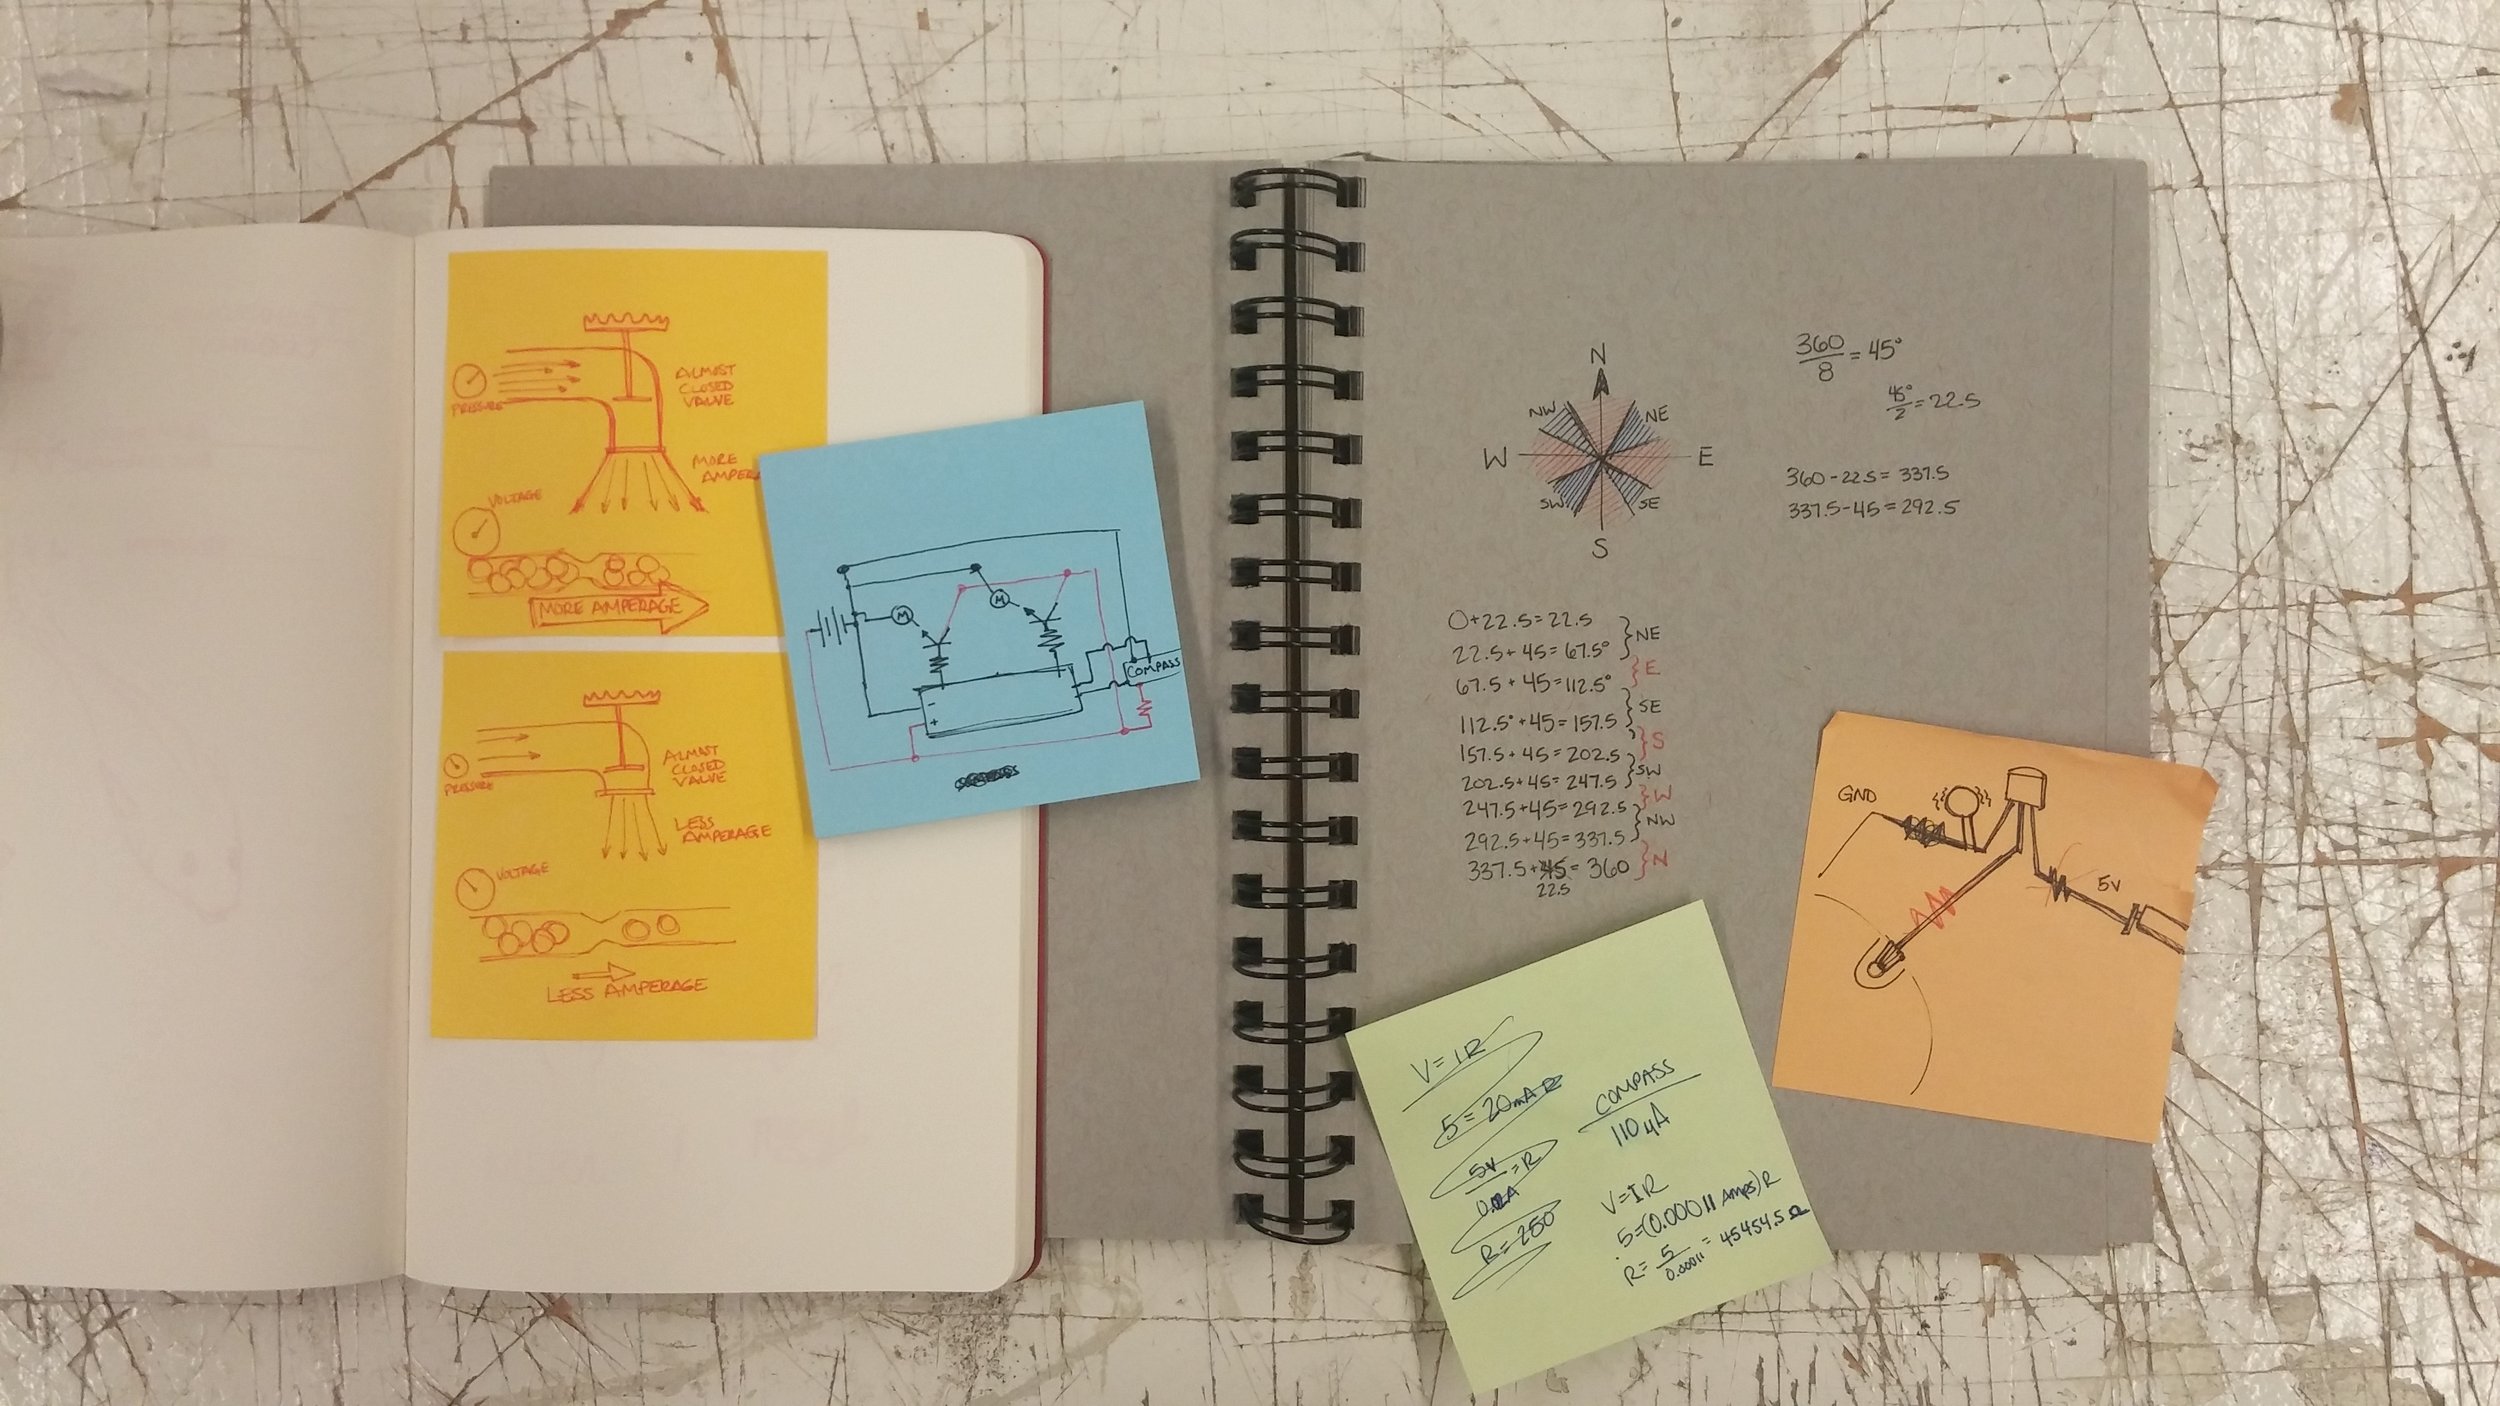 PRESSURE
ALMOST
CLOSED
VALVE
MORE
VOLTAGE
MORE AMPERAGE
PRESSURE
ALMOST
CLOSED
VALVE
LESS
AMPERAGE
VOLTAGE
LESS AMPERAGE
M
M
COMPASS
-
+
N
NW
NE
W
E
SW
SE
S
360/8 = 45°
45°/2 = 22.5
360 - 22.5 = 337.5
337.5 - 45 = 292.5
0 + 22.5 = 22.5
NE
22.5 + 45 = 67.5°
E
67.5 + 45 = 112.5°
SE
112.5° + 45 = 157.5
S
157.5 + 45 = 202.5
SW
202.5 + 45 = 247.5
W
247.5 + 45 = 292.5
NW
292.5 + 45 = 337.5
N
337.5 + 45 = 360
22.5
V = IR
5 = 20mA R
5V/0.02A = R
R = 250
COMPASS
110 µA
V = IR
5 = (0.00011 Amps) R
R = 5/0.00011 = 45454.5 Ω
GND
5V